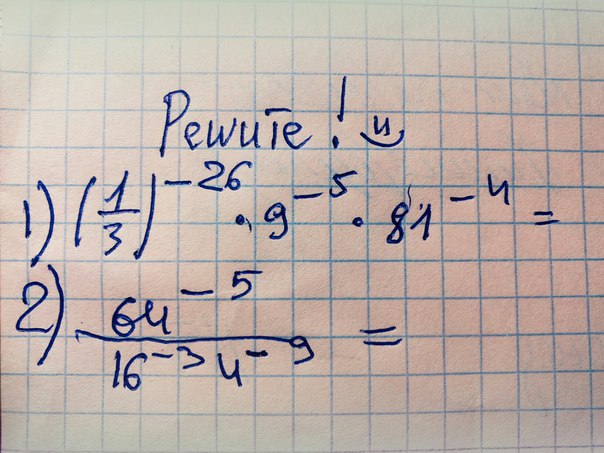 Решите!
1) (1/3)^-26 · 9^-5 · 81^-4 =
2) 64^-5 / 16^-3 4^-9 =